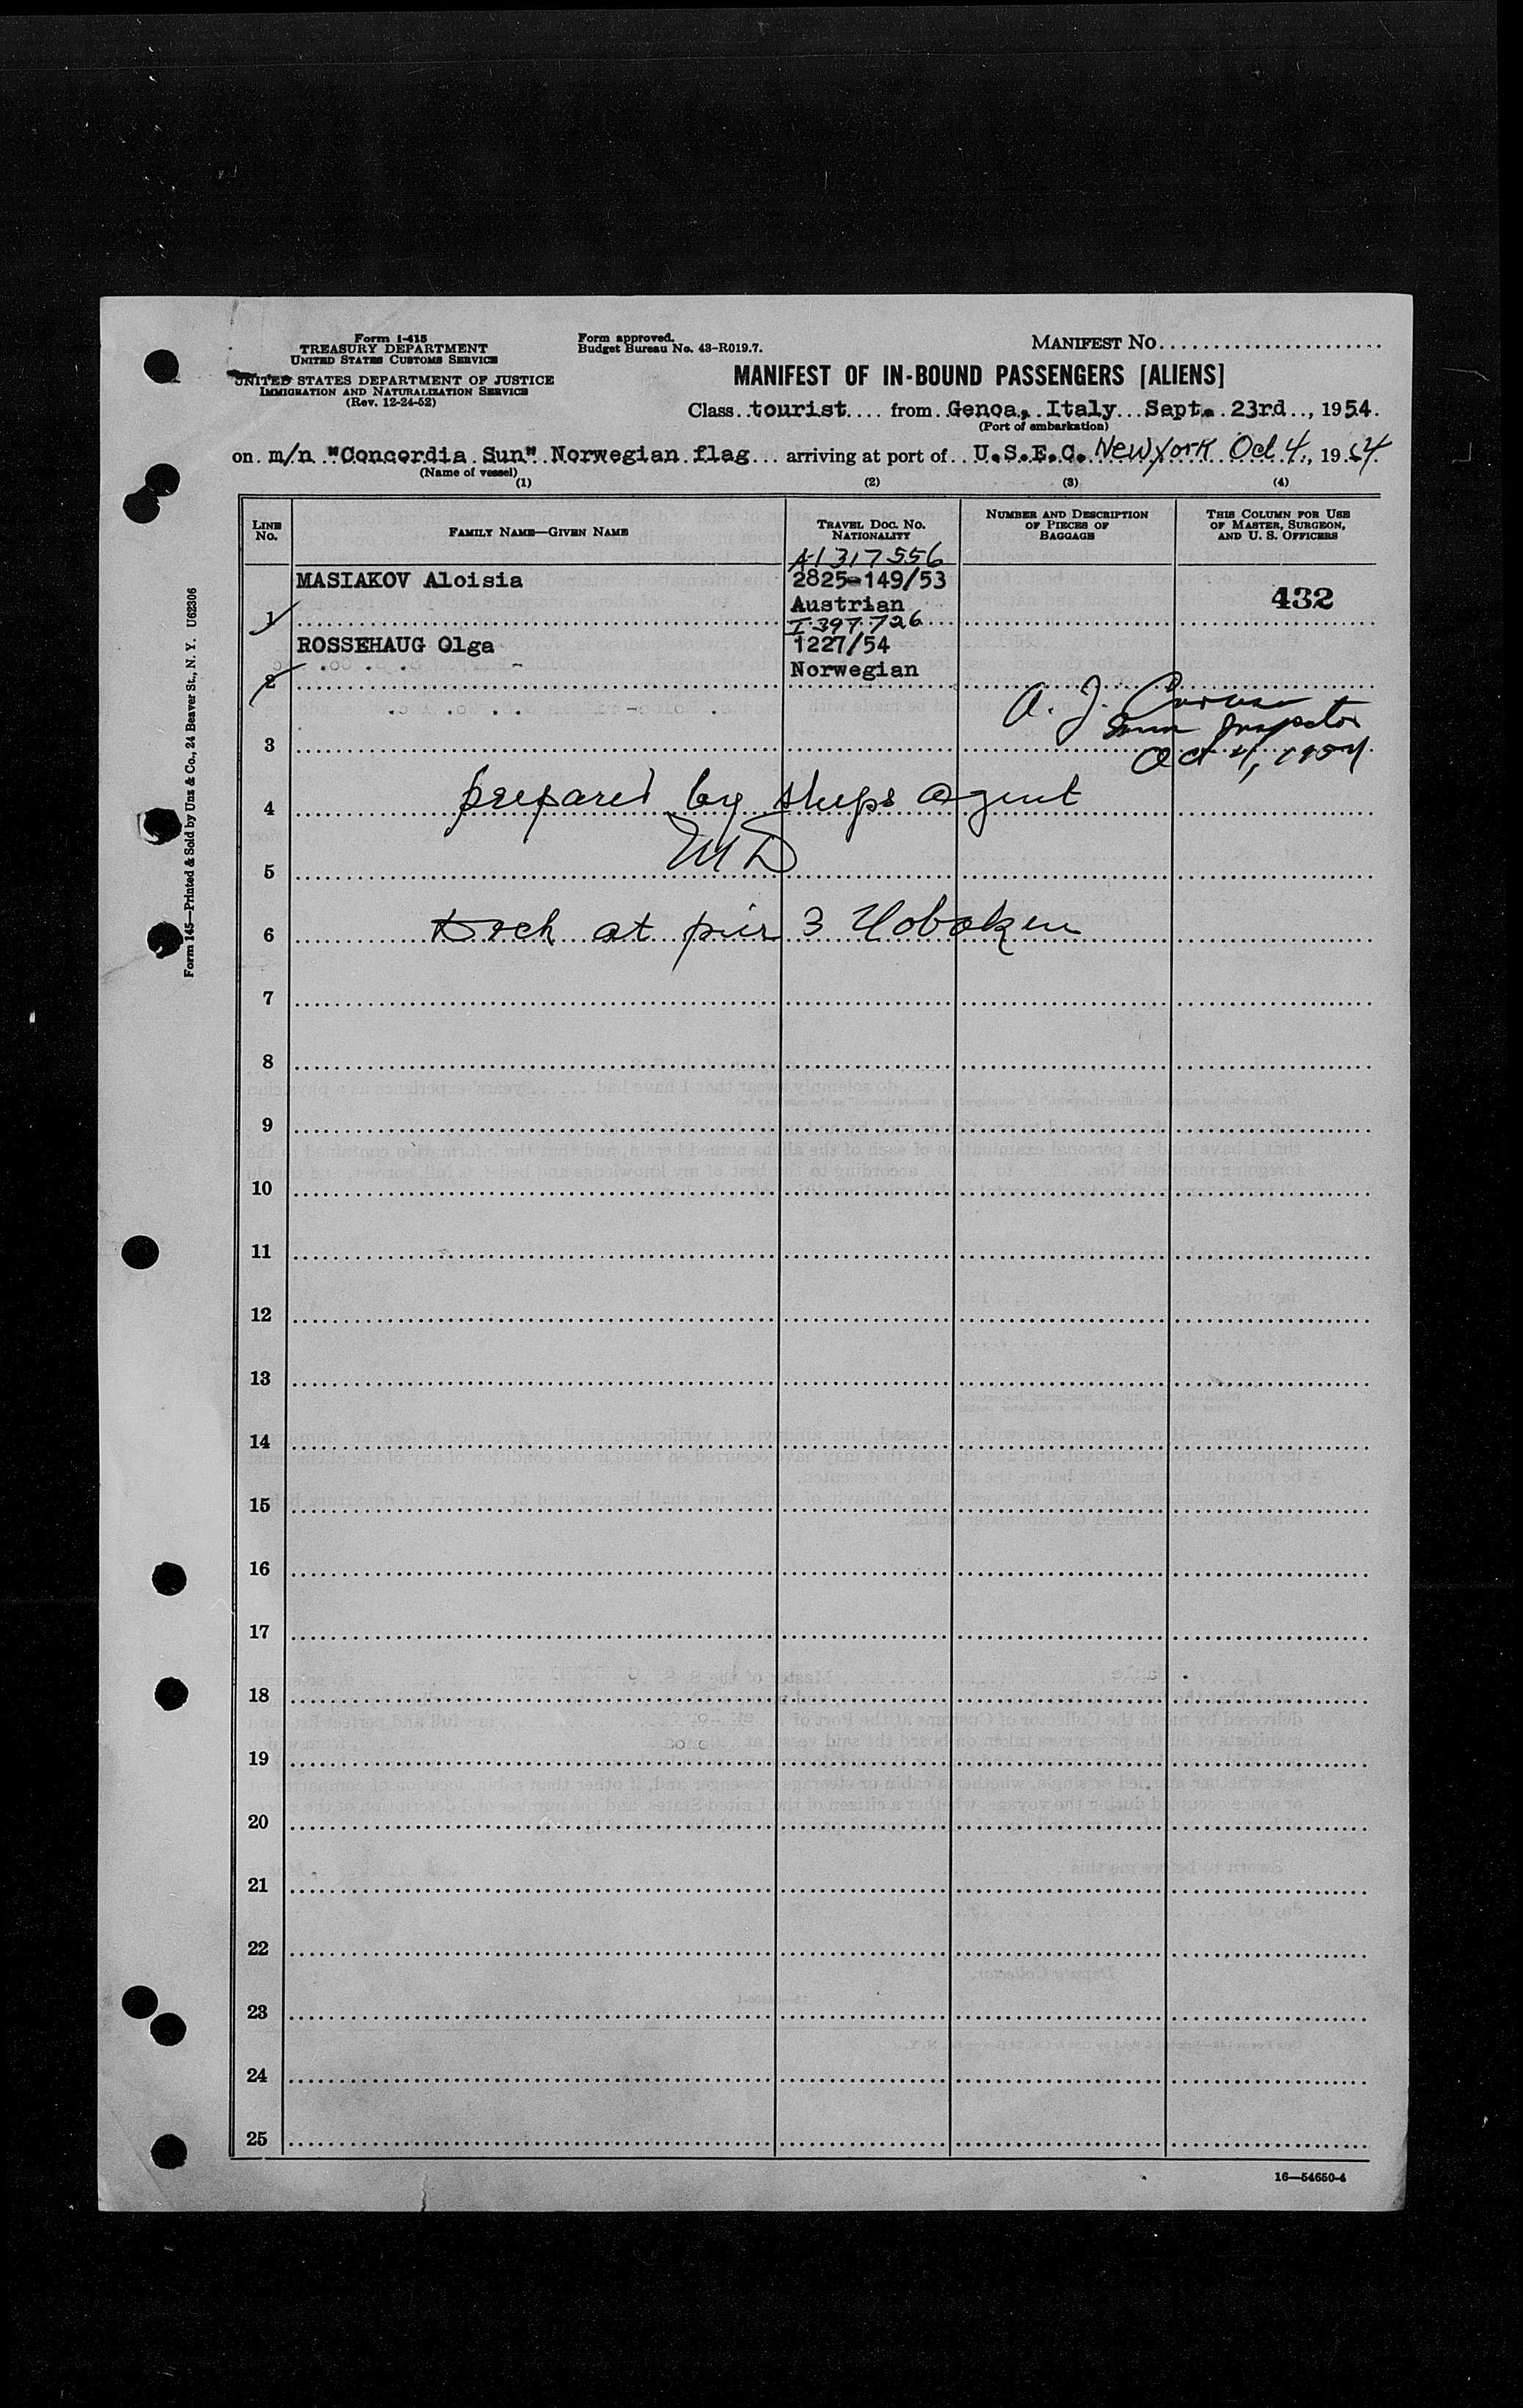 Form I-415
TREASURY DEPARTMENT
UNITED STATES CUSTOMS SERVICE
UNITED STATES DEPARTMENT OF JUSTICE
IMMIGRATION AND NATURALIZATION SERVICE
(Rev. 12-24-52)
Form approved.
Budget Bureau No. 43-R019.7.
MANIFEST NO.
MANIFEST OF IN-BOUND PASSENGERS [ALIENS]
Class tourist from Genoa, Italy Sept. 23rd, 1954.
(Port of embarkation)
on m/n "Concordia Sun" Norwegian flag arriving at port of U.S.E.C. New York Oct 4, 1954
(Name of vessel)
(1) (2) (3) (4)
LINE NO.
FAMILY NAME—GIVEN NAME
TRAVEL DOC. NO. NATIONALITY
NUMBER AND DESCRIPTION OF PIECES OF BAGGAGE
THIS COLUMN FOR USE OF MASTER, SURGEON, AND U. S. OFFICERS
A-1317556
MASIAKOV Aloisia 2825-149/53
1 Austrian 432
I 397726
ROSSEHAUG Olga 1227/54
2 Norwegian
A. J.
Inspector
3 Oct 4, 1954
4 prepared by ships agent
MD
5
6 Dock at pier 3 Hoboken
7
8
9
10
11
12
13
14
15
16
17
18
19
20
21
22
23
24
25
16—54650-4
Form 145—Printed & Sold by Unz & Co., 24 Beaver St., N. Y. U62306